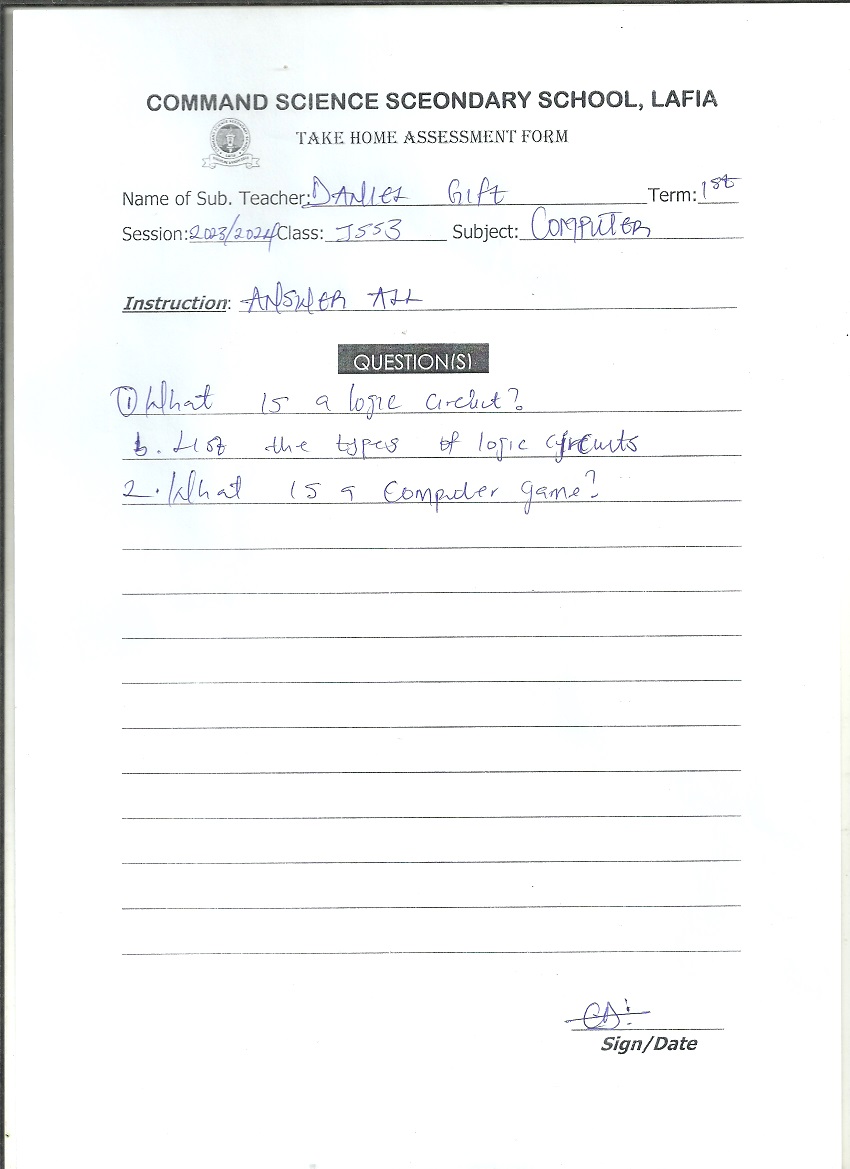 COMMAND SCIENCE SCEONDARY SCHOOL, LAFIA
TAKE HOME ASSESSMENT FORM
Name of Sub. Teacher: DANIEL Gift Term: 1st
Session: 2023/2024 Class: JSS3 Subject: COMPUTER
Instruction: ANSWER ALL
QUESTION(S)
① What is a logic circuit?
b. List the types of logic circuits
2. What is a Computer game?
Sign/Date